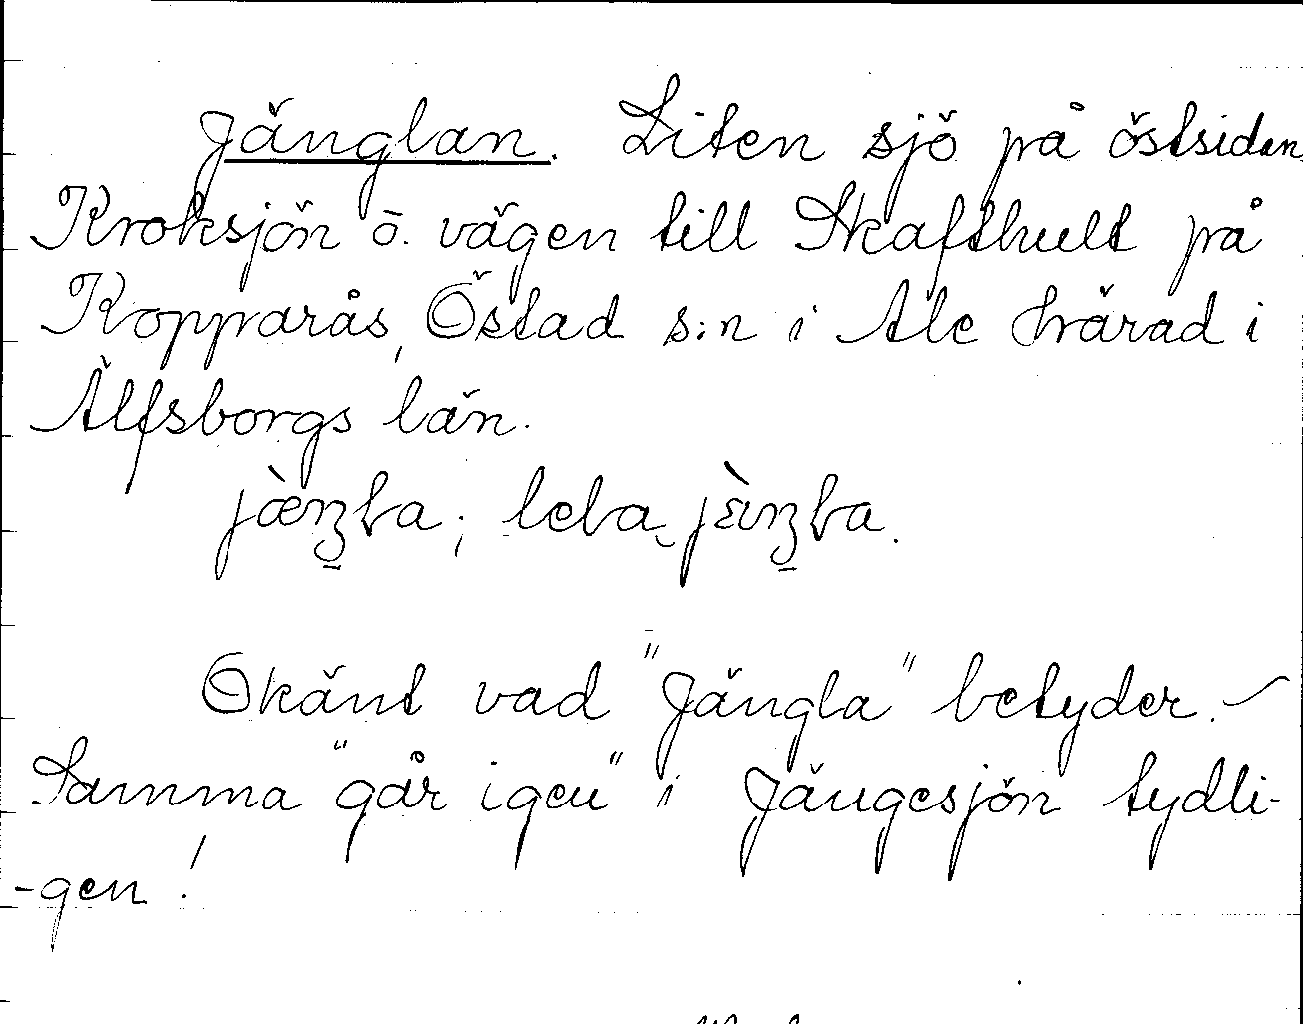 Jänglan. Liten sjö på östsidan
Kroksjön o. vägen till Skafthult på
Kopparås, Östad s:n i Ale härad i
Älfsborgs län.
Okänt vad "Jängla" betyder. –
Samma "går igen" i Jängesjön tydli-
-gen!